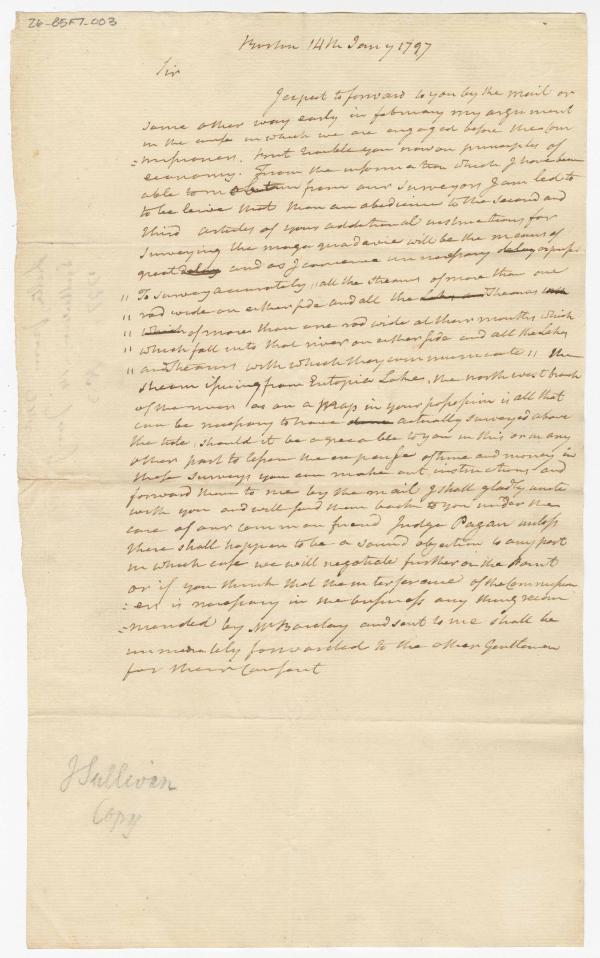 26-85F7-003
Boston 14th Jany 1797
Sir
I expect to forward to you by the mail or
some other way early in february my argument
in the case in which we are engaged before the Com
=missioners. but trouble you now on principles of
economy. From the information which I have been
able to obtain from our surveyors I am led to
to be leive that than an obedience to the second and
third articles of your additional instructions for
surveying the magaguadavie will be the means of
great delay and as I conceive unnecessary delay expense
" To survey accurately, all the streams of more than one
" rod wide on either side and all the Lakes and Streams
" which of more than one rod wide at their mouths which
" which fall into that river on either side and all the Lakes
" and Streams with which they communicate " the
stream issuing from Eutopia Lakes, the north west branch
of the river as on a Map in your possession is all that
can be necessary to have done actually surveyed above
the tide, should it be agreeable to you in this or in any
other part to lessen the expense of time and money in
these surveys you can make out instructions and
forward them to me by the mail I shall gladly unite
with you and will send them back to you under the
care of our common friend Judge Pagan unless
there shall happen to be a sound objection to any part
in which case we will negotiate further on the Point
or if you think that the interference of the Commission
=ers is necessary in the business any thing recom
=mended by Mr Barclay and sent to me shall be
immediately forwarded to the other Gentlemen
for their Consent
J Sullivan
Copy